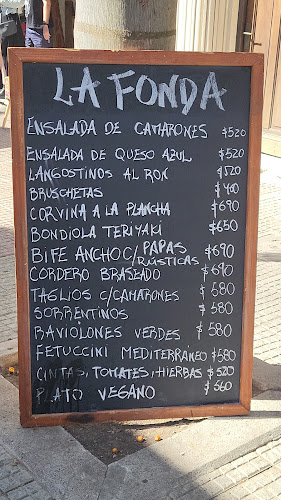 LA FONDA
ENSALADA DE CAMARONES $520
ENSALADA DE QUESO AZUL $520
LANGOSTINOS AL RON $520
BRUSCHETAS $400
CORVINA A LA PLANCHA $690
BONDIOLA TERIYAKI $650
BIFE ANCHO C/PAPAS RÚSTICAS $690
CORDERO BRASEADO $690
TAGLIOS C/CAMARONES $580
SORRENTINOS $580
RAVIOLONES VERDES $580
FETUCCINI MEDITERRÁNEO $580
CINTAS, TOMATES, HIERBAS $520
PLATO VEGANO $560